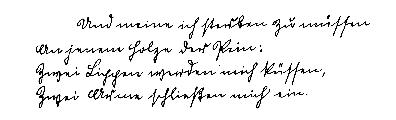 Und meine ich sterben zu müssen
An jenem Holze der Pein:
Zwei Lippen werden mich küssen,
Zwei Arme schließen mich ein.